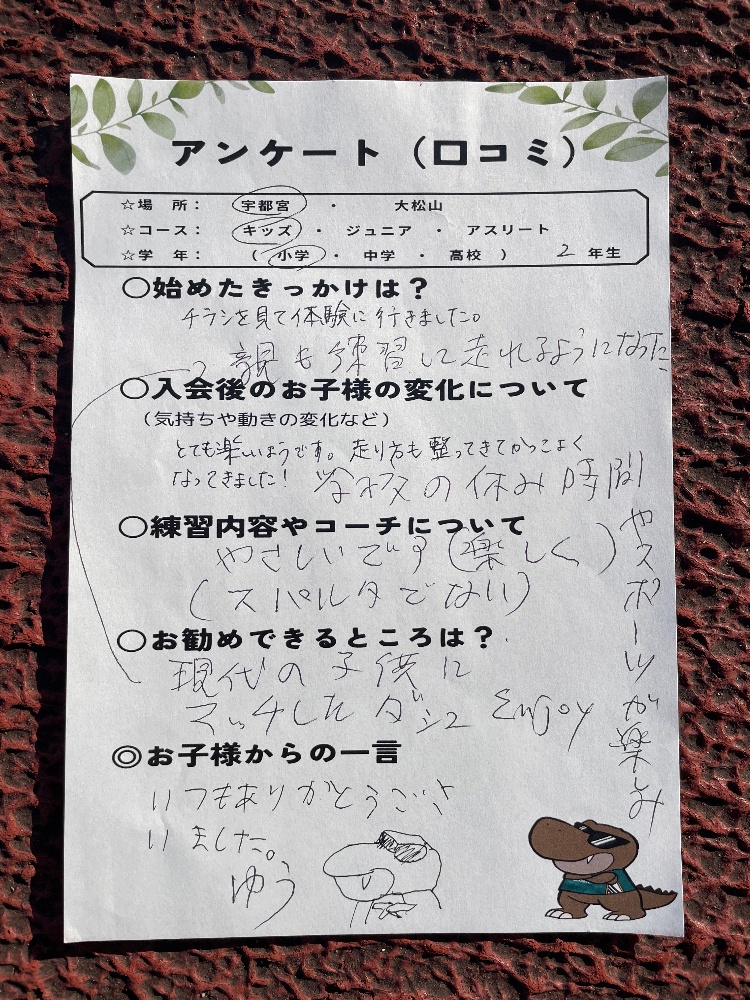 アンケート（口コミ）
☆場　所：　宇都宮　・　大松山
☆コース：　キッズ　・　ジュニア　・　アスリート
☆学　年：　（　小学　・　中学　・　高校　）　2　年生
○始めたきっかけは？
チラシを見て体験に行きました。
親も練習して走れるようになった
○入会後のお子様の変化について
（気持ちや動きの変化など）
とても楽しいようです。走り方も整ってきてかっこよく
なってきました！
学校の休み時間
やスポーツが楽しみ
○練習内容やコーチについて
やさしいです（楽しく）
（スパルタでない）
○お勧めできるところは？
現代の子供に
マッチした enjoy
◎お子様からの一言
いつもありがとうござ
いました。
ゆう